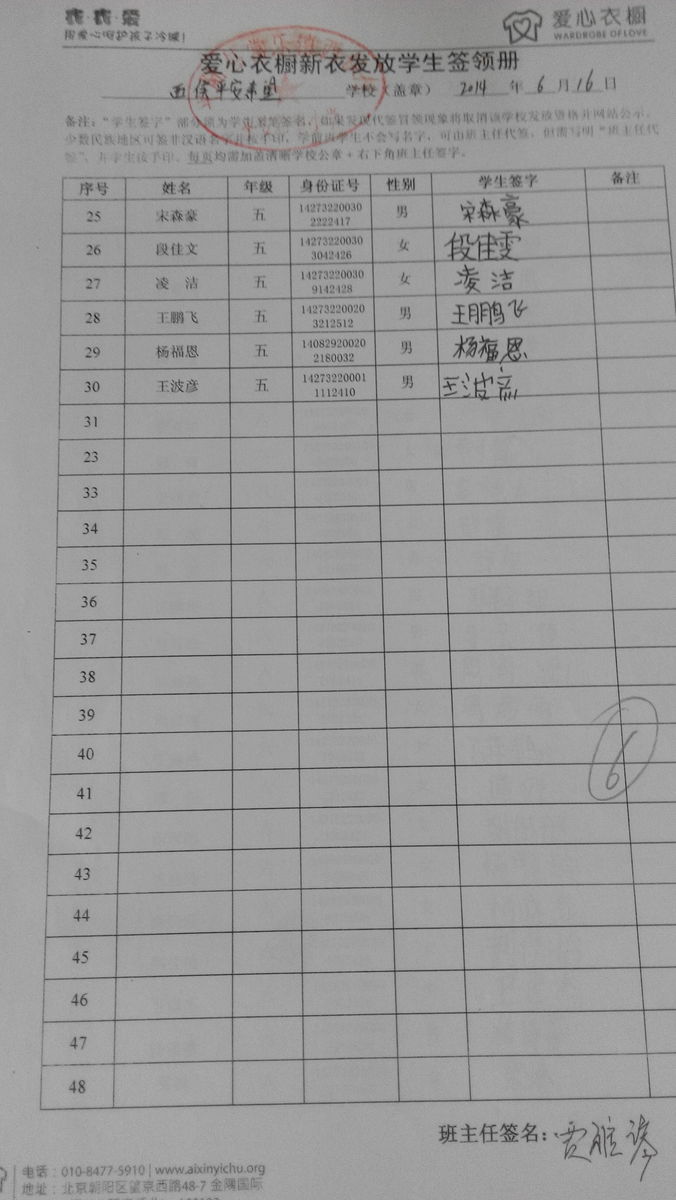 爱心衣橱
用爱心呵护孩子冷暖!
WARDROBE OF LOVE
爱心衣橱新衣发放学生签领册
西侯平安希望 学校(盖章) 2014 年 6 月 16 日
备注:“学生签字”部分须为学生亲笔签名,如果发现代签冒领现象将取消该学校发放资格并网站公示。
少数民族地区可签非汉语名字并按手印,学前班学生不会写名字,可由班主任代签,但需写明“班主任代
签”,并学生按手印。每页均需加盖清晰学校公章+右下角班主任签字。
序号 姓名 年级 身份证号 性别 学生签字 备注
25 宋森豪 五 14273220030 2222417 男 宋森豪
26 段佳文 五 14273220030 3042426 女 段佳雯
27 凌 洁 五 14273220030 9142428 女 凌洁
28 王鹏飞 五 14273220020 3212512 男 王鹏飞
29 杨福恩 五 14082920020 2180032 男 杨福恩
30 王波彦 五 14273220001 1112410 男 王波彦
31
23
33
34
35
36
37
38
39
40
41
6
42
43
44
45
46
47
48
班主任签名:
电话:010-8477-5910 | www.aixinyichu.org
地址:北京朝阳区望京西路48-7 金隅国际